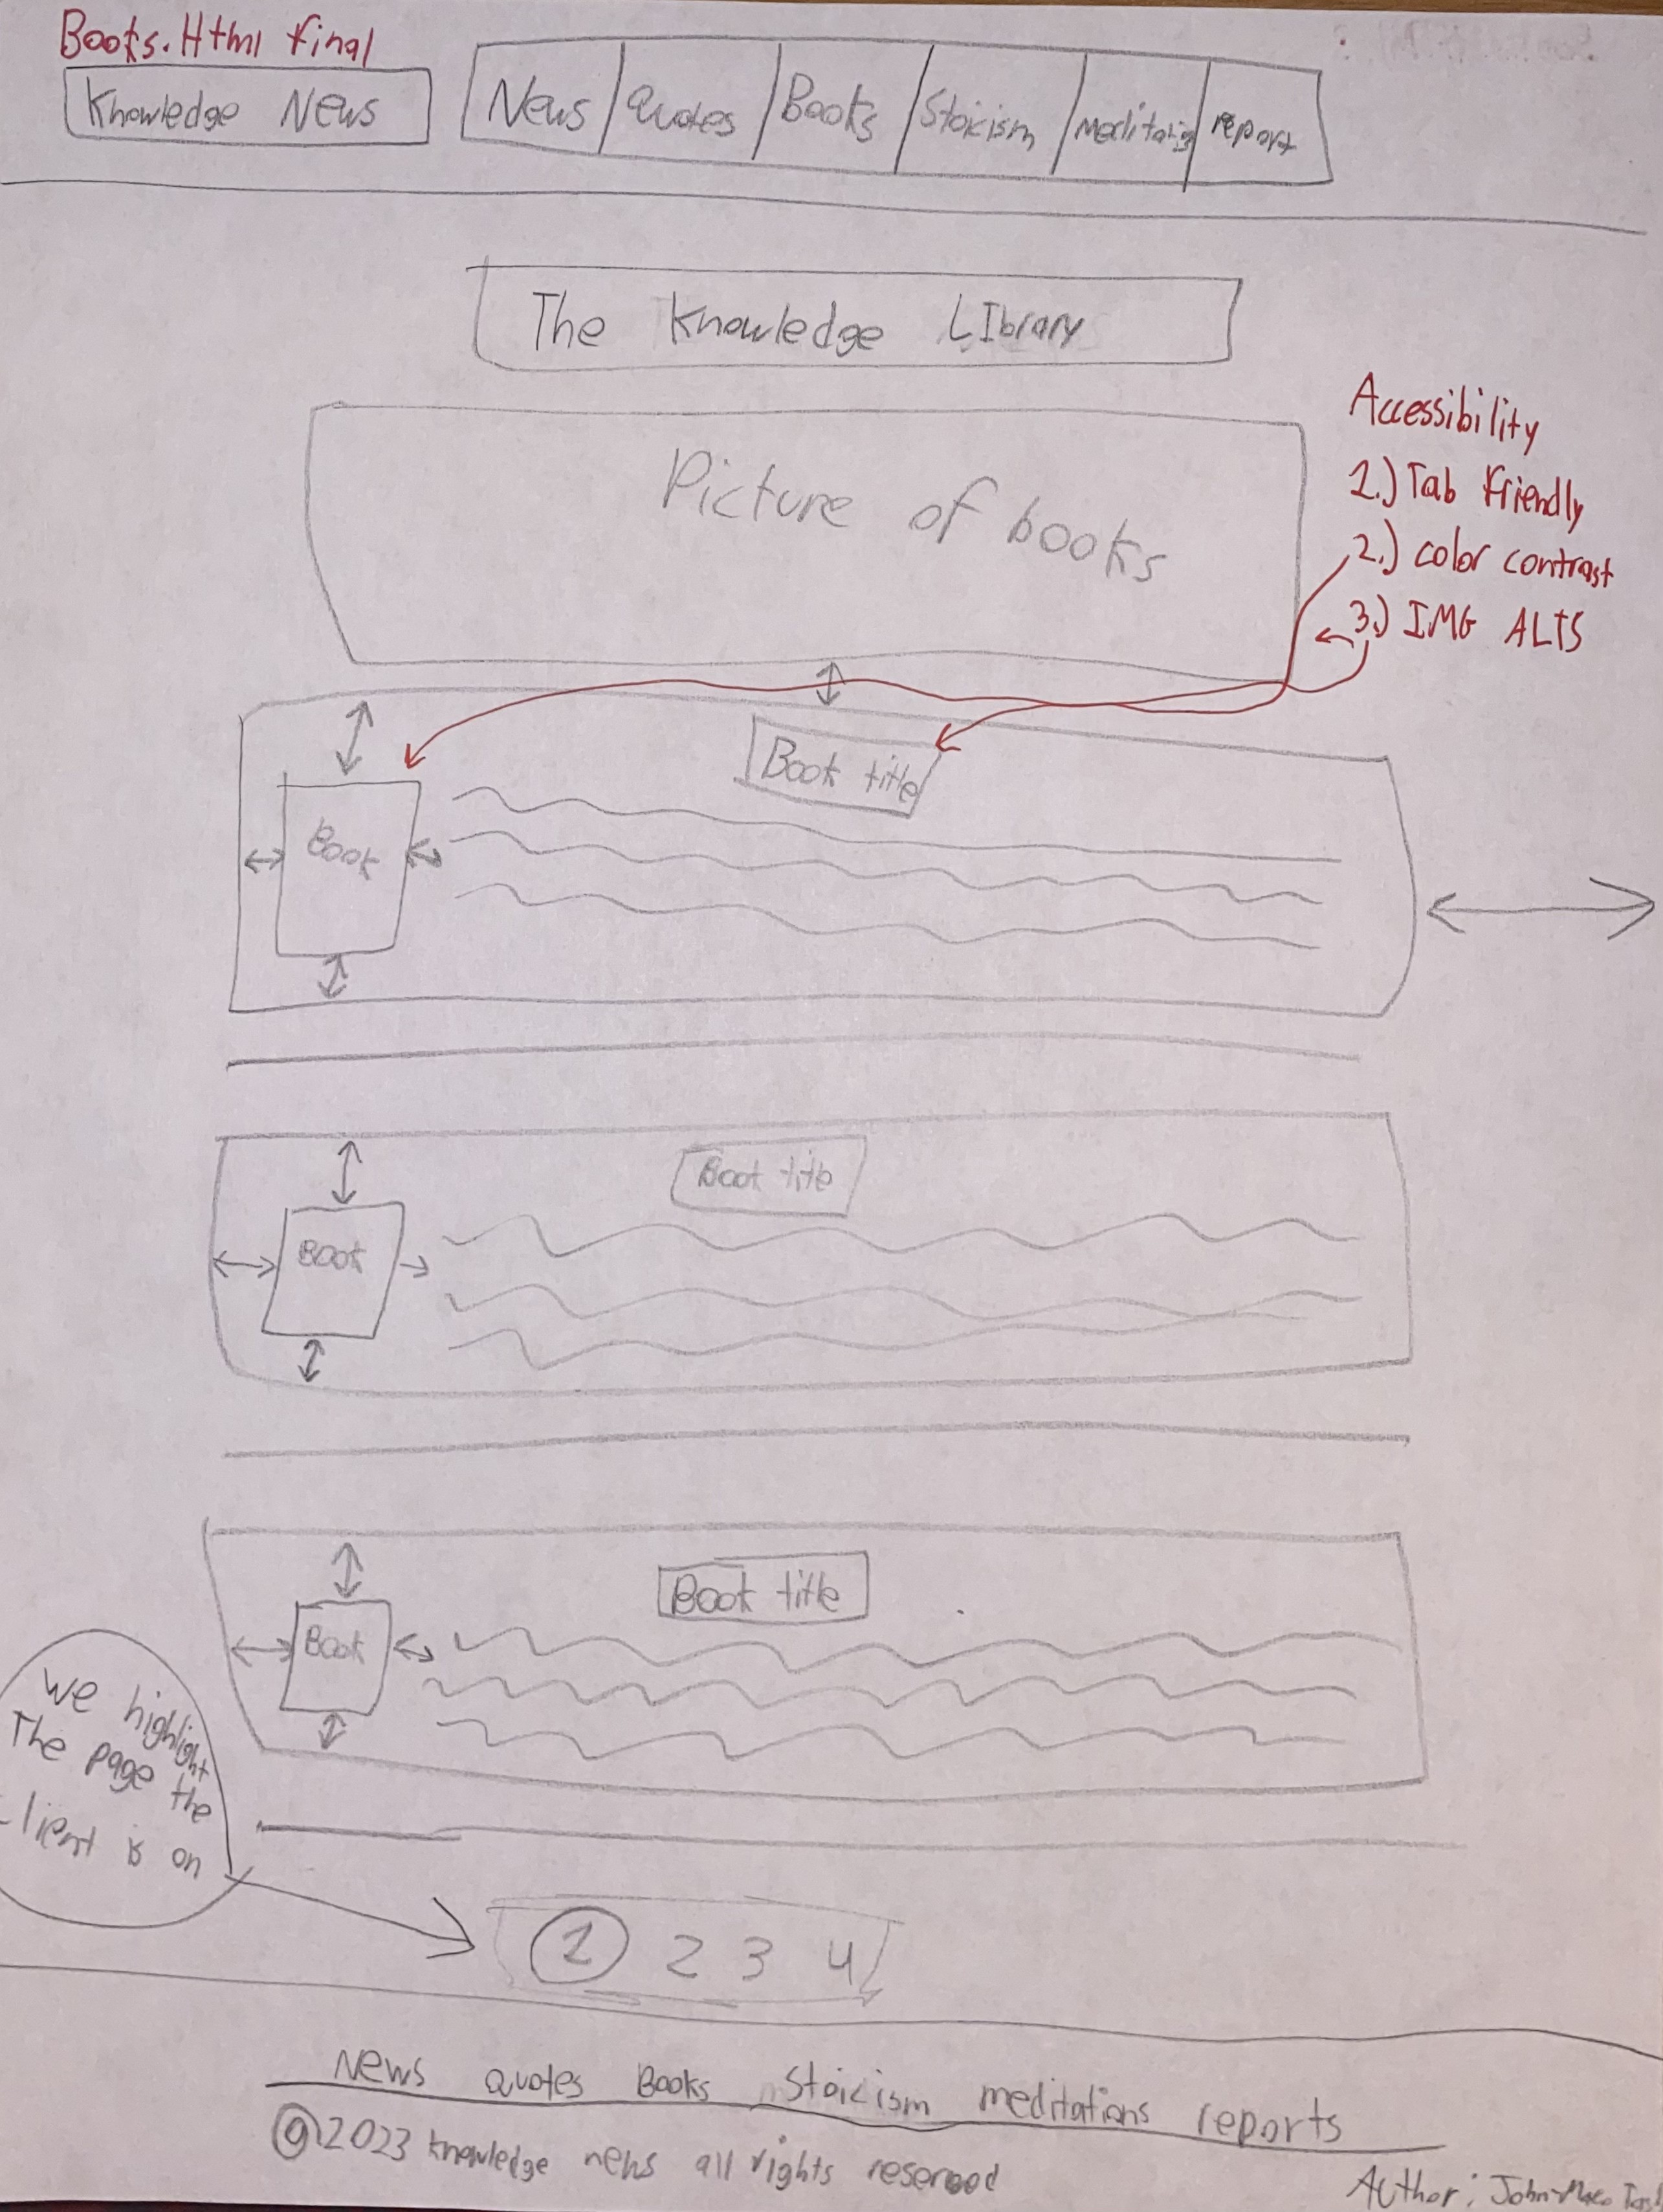 Books.Html final
Knowledge News
News Quotes Books Stoicism meditating report
The Knowledge LIbrary
Picture of books
Accessibility
1.) Tab friendly
2.) color contrast
3.) IMG ALTS
Book title
Book
Book title
Book
Book title
Book
we highlight
The page the
client is on
1 2 3 4
News quotes Books Stoicism meditations reports
© 2023 knowledge news all rights reserved
Author: John-Marc